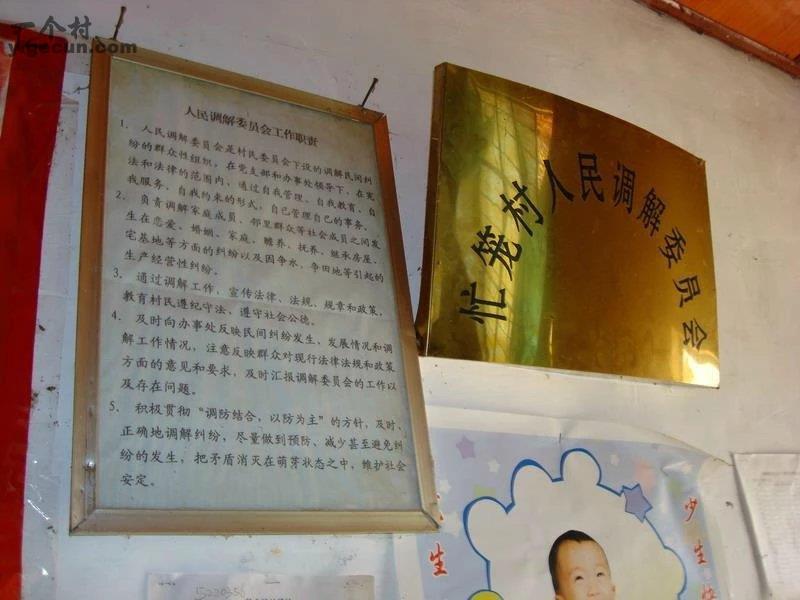 一个村
yigecun.com
人民调解委员会工作职责
1、人民调解委员会是村民委员会下设的调解民间纠
纷的群众性组织，在党支部和办事处领导下，在宪
法和法律的范围内，通过自我管理、自我教育、自
我服务、自我约束的形式，自己管理自己的事务。
2、负责调解家庭成员、邻里群众等社会成员之间发
生在恋爱、婚姻、家庭、赡养、抚养、继承房屋、
宅基地等方面的纠纷以及因争水、争田地等引起的
生产经营性纠纷。
3、通过调解工作，宣传法律、法规、规章和政策，
教育村民遵纪守法、遵守社会公德。
4、及时向办事处反映民间纠纷发生、发展情况和调
解工作情况，注意反映群众对现行法律法规和政策
方面的意见和要求，及时汇报调解委员会的工作以
及存在问题。
5、积极贯彻“调防结合，以防为主”的方针，及时、
正确地调解纠纷，尽量做到预防、减少甚至避免纠
纷的发生，把矛盾消灭在萌芽状态之中，维护社会
安定。
忙笼村人民调解委员会
生
少生